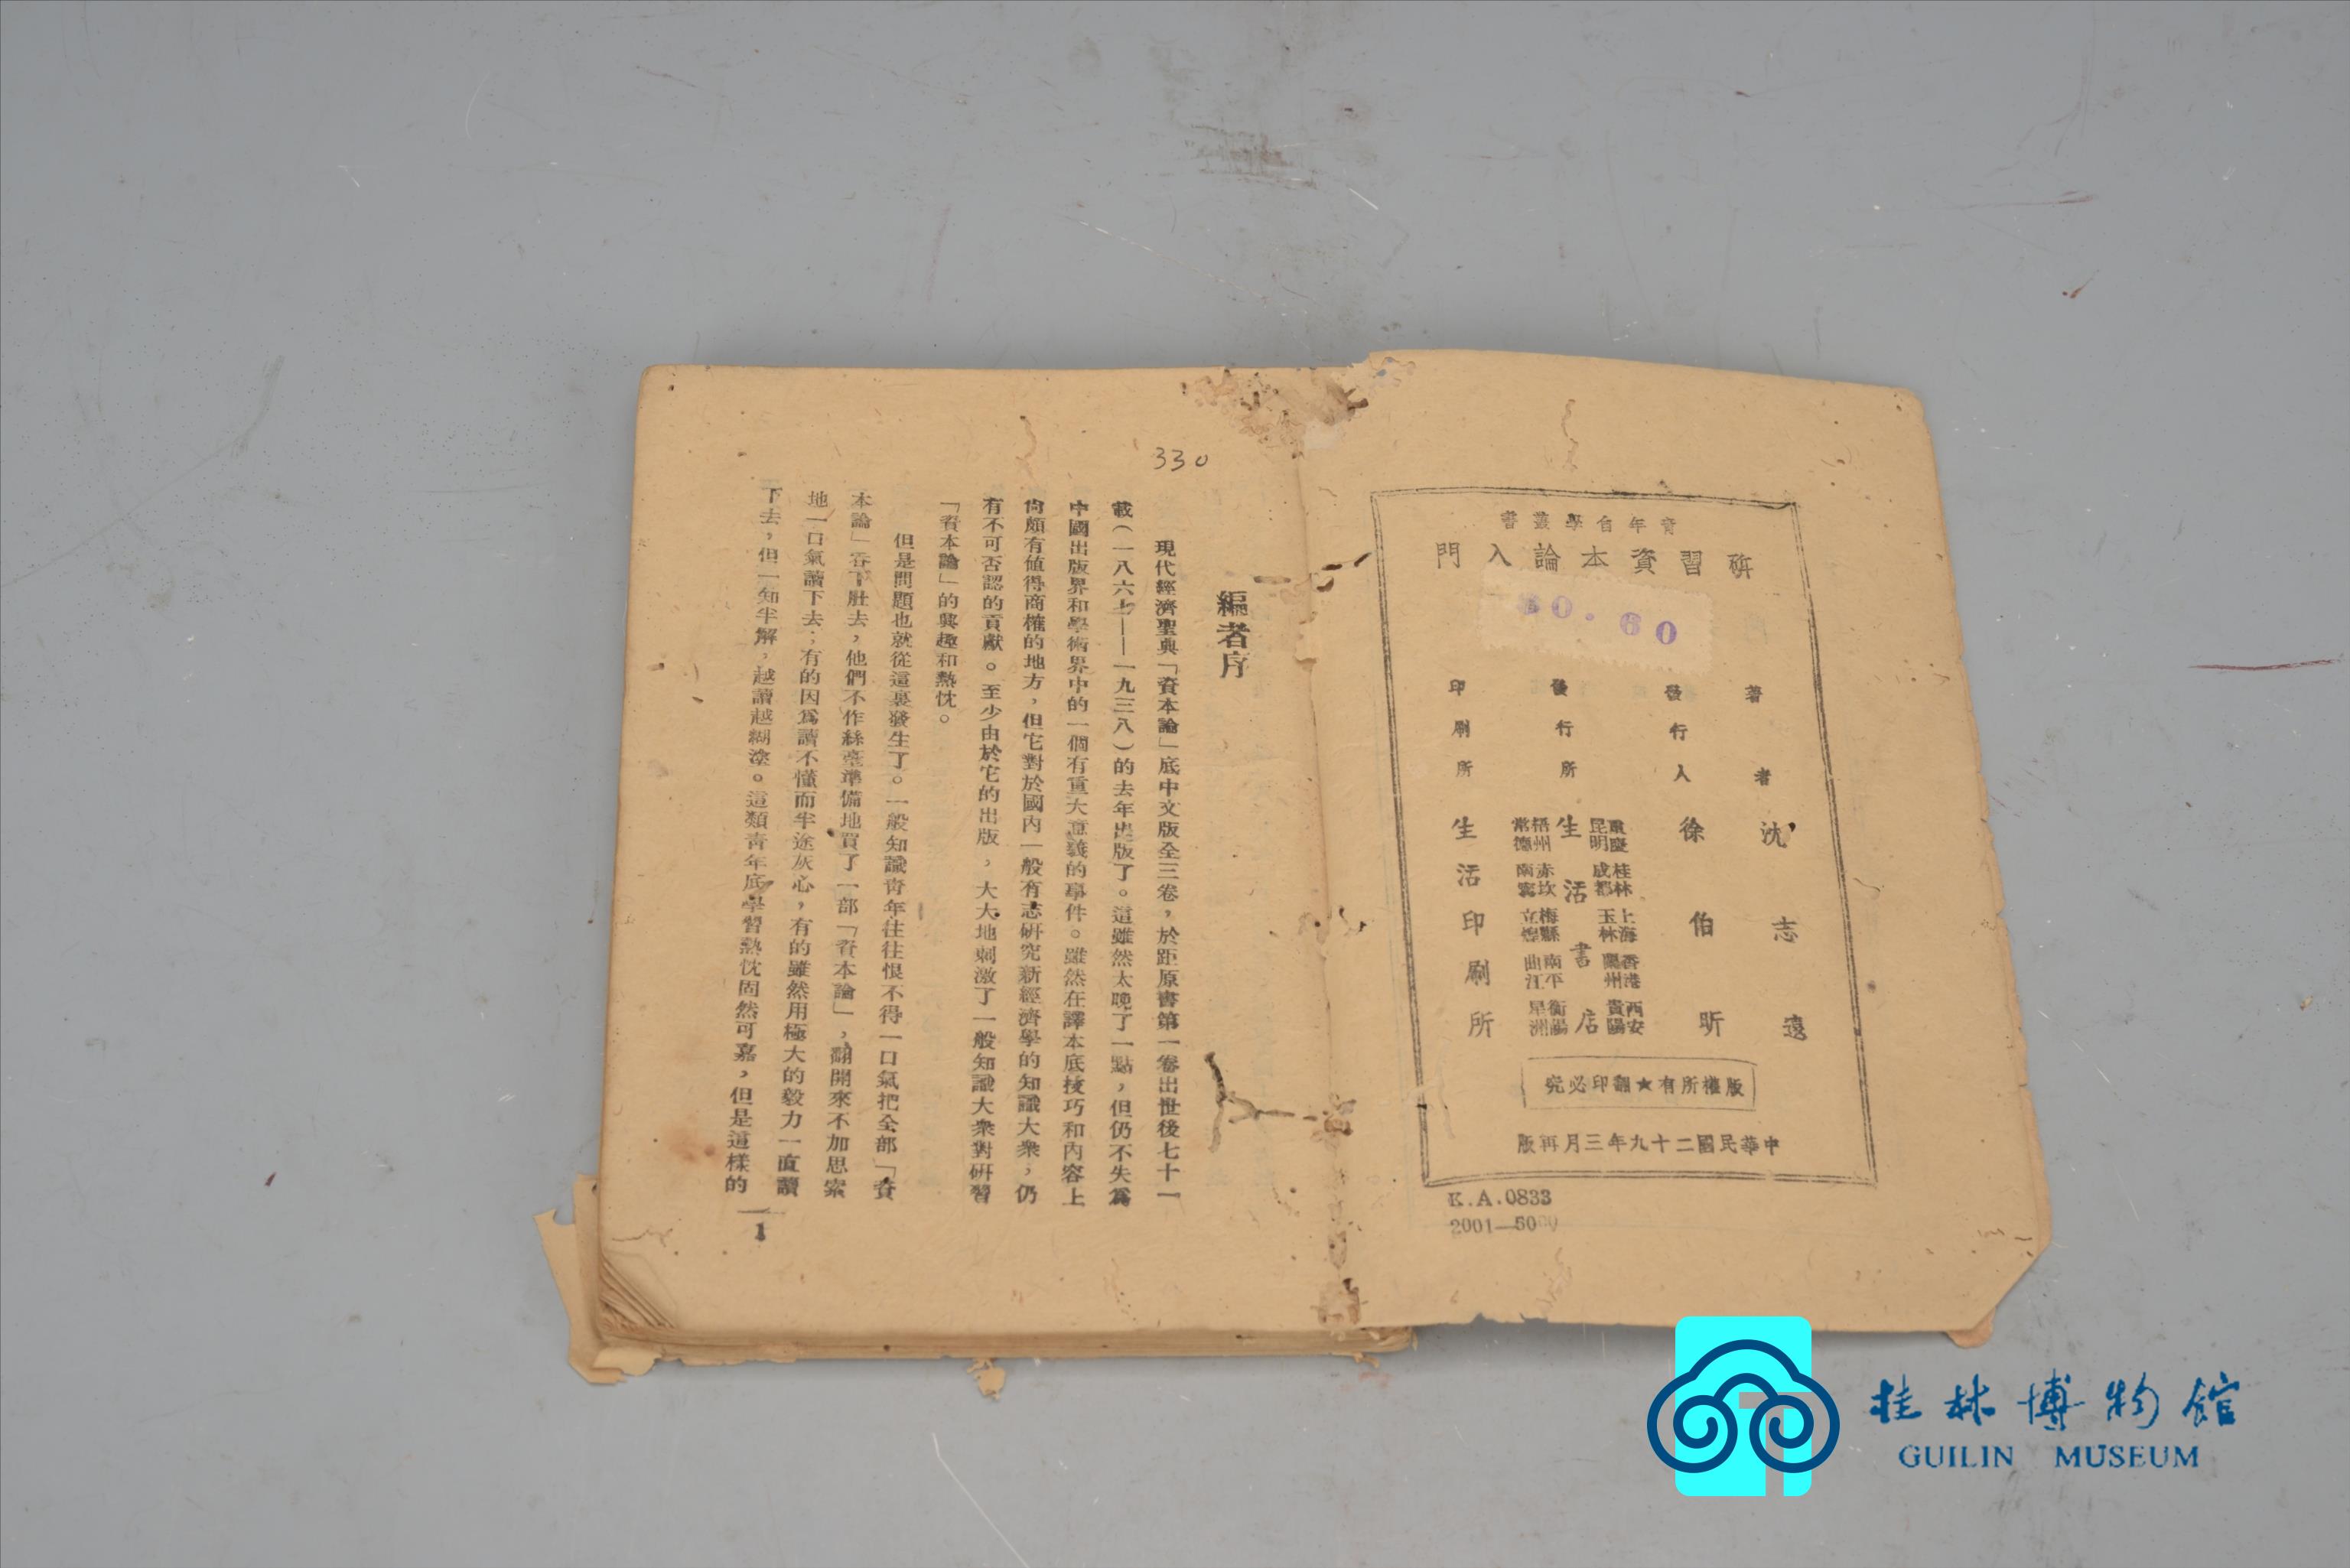 青年自學叢書
研習資本論入門
$0.60
著者 沈志遠
發行人 徐伯昕
發行所 生活書店
重慶 桂林 上海 香港 西安
昆明 成都 玉林 蘭州 貴陽
梧州 赤坎 梅縣 南平 衡陽
常德 南寧 立煌 曲江 星洲
印刷所 生活印刷所
版權所有★翻印必究
中華民國二十九年三月再版
K.A.0833
2001—5000
330
編者序
現代經濟聖典「資本論」底中文版全三卷,於距原書第一卷出世後七十一
載(一八六七——一九三八)的去年出版了。這雖然太晚了一點,但仍不失爲
中國出版界和學術界中的一個有重大意義的事件。雖然在譯本底技巧和內容上
尙頗有値得商榷的地方,但它對於國內一般有志研究新經濟學的知識大衆,仍
有不可否認的貢獻。至少由於它的出版,大大地刺激了一般知識大衆對研習
「資本論」的興趣和熱忱。
但是問題也就從這裏發生了。一般知識青年往往恨不得一口氣把全部「資
本論」吞下肚去,他們不作絲毫準備地買了一部「資本論」,翻開來不加思索
地一口氣讀下去;有的因爲讀不懂而半途灰心,有的雖然用極大的毅力一直讀
下去,但一知半解,越讀越糊塗。這類青年底學習熱忱固然可嘉,但是這樣的
1
桂林博物館
GUILIN MUSEUM